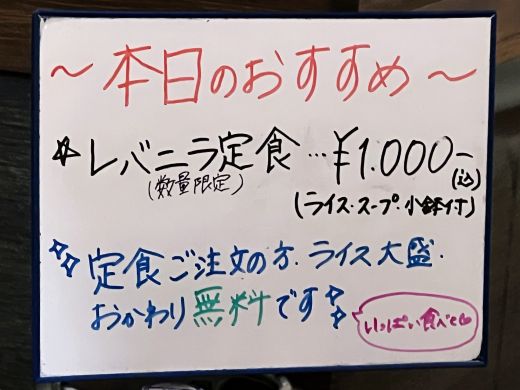 〜本日のおすすめ〜
☆レバニラ定食…¥1.000-(込)
(数量限定)
(ライス・スープ・小鉢付)
定食ご注文の方、ライス大盛・
おかわり無料です
いっぱい食べてね